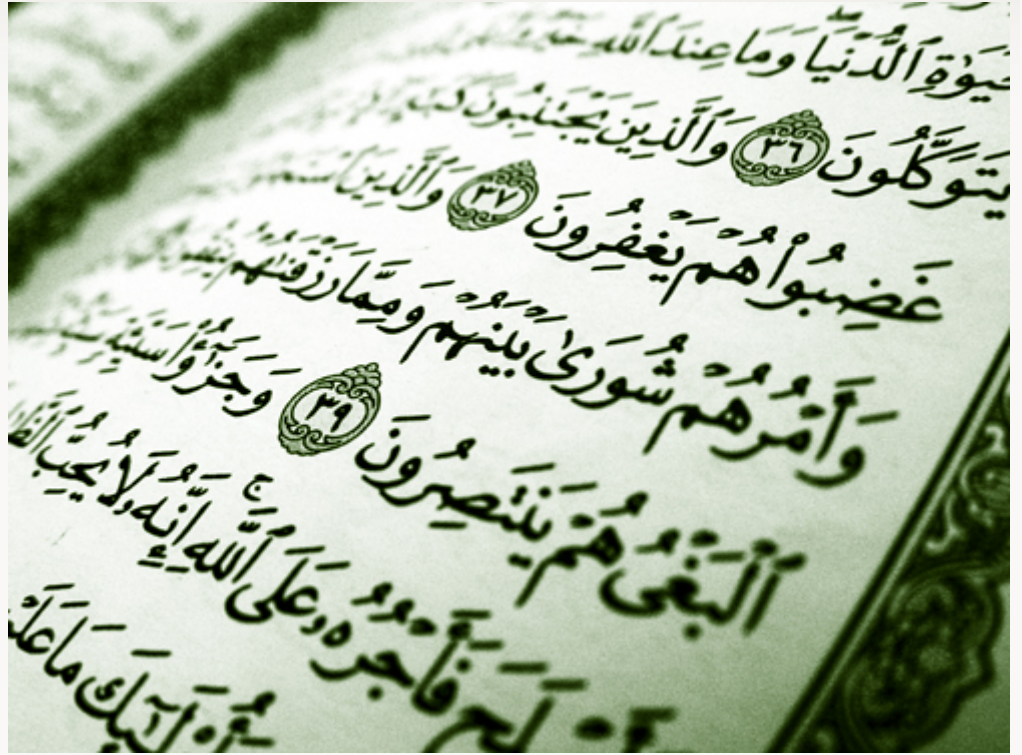 حَيَوٰةِ ٱلدُّنْيَا وَمَا عِندَ ٱللَّهِ
يَتَوَكَّلُونَ ٣٦ وَٱلَّذِينَ يَجْتَنِبُونَ
غَضِبُوا۟ هُمْ يَغْفِرُونَ ٣٧ وَٱلَّذِينَ
وَأَمْرُهُمْ شُورَىٰ بَيْنَهُمْ وَمِمَّا رَزَقْنَـٰهُمْ
ٱلْبَغْىُ هُمْ يَنتَصِرُونَ ٣٩ وَجَزَٰٓؤُا۟ سَيِّئَةٍ
لَحَ فَأَجْرُهُۥ عَلَى ٱللَّهِ ۚ إِنَّهُۥ لَا يُحِبُّ
أُو۟لَـٰٓئِكَ مَا